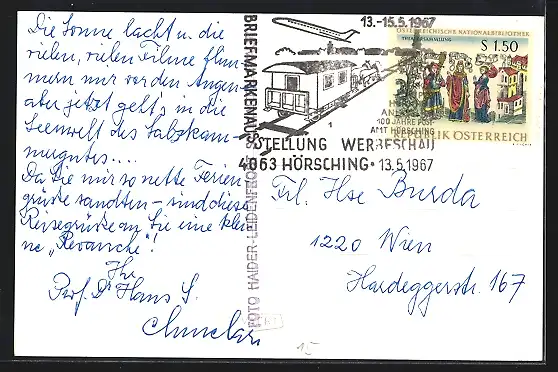 Die Sonne lacht u. die
vielen, vielen Filme flim-
mern mir vor den Augen
aber jetzt geht's in die
Seenwelt des Salzkam-
mergutes....
Da Sie mir so nette Ferien-
grüße sandten - sind diese
Reisegrüße an Sie eine klei-
ne "Revanche"!
Ihr
Prof. Dr Hans S.
FOTO HAIDER-LEIDENFROST
13.-15.5.1967
BRIEFMARKENAUSSTELLUNG WERBESCHAU
100 JAHRE POST-
AMT HÖRSCHING
4063 HÖRSCHING • 13.5.1967
ÖSTERREICHISCHE NATIONALBIBLIOTHEK
THEATERSAMMLUNG
S 1.50
REPUBLIK ÖSTERREICH
Frl. Ilse Burda
1220 Wien
Hardeggerstr. 167
15